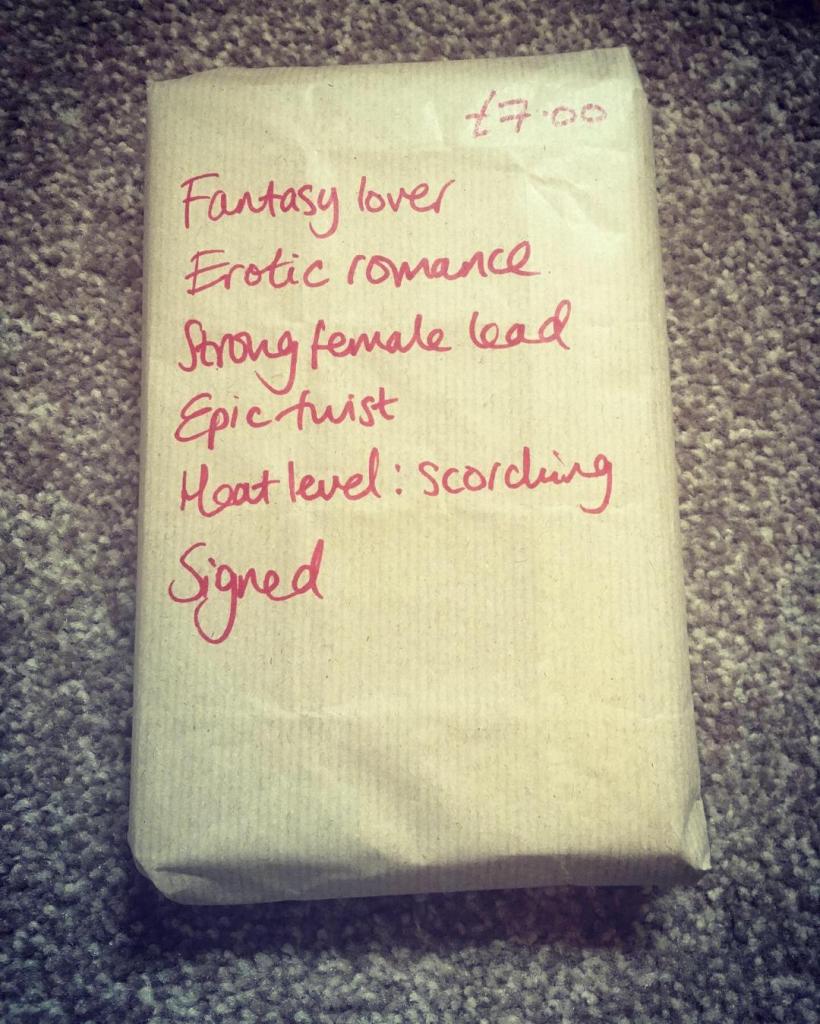 £7.00
Fantasy lover
Erotic romance
Strong female lead
Epic twist
Heat level: scorching
Signed